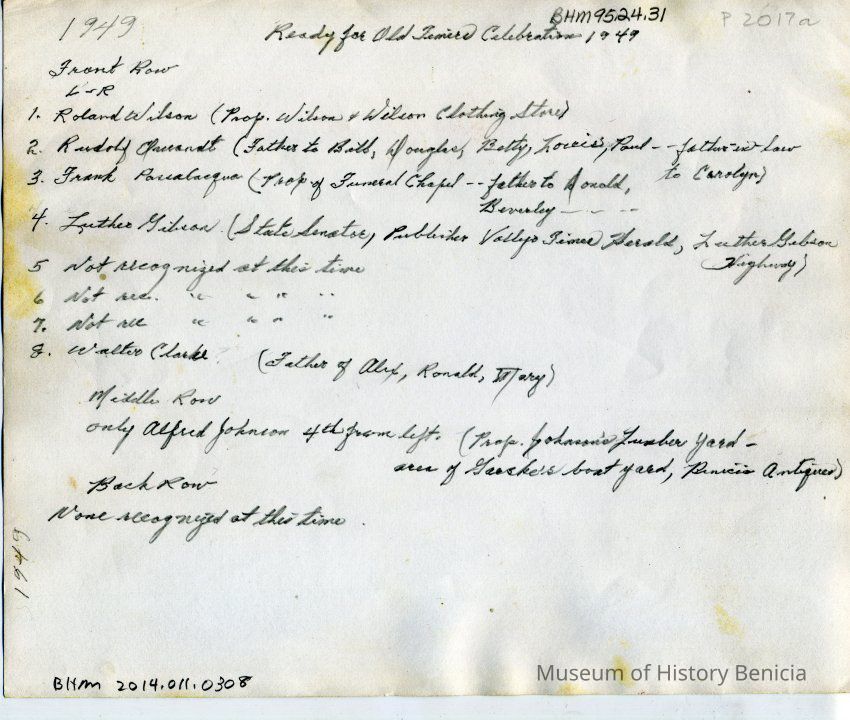 BHM95.24.31
P 2017a
1949
Ready for Old Timers Celebration 1949
Front Row
L-R
1. Roland Wilson (Prop. Wilson & Wilson Clothing Store)
2. Rudolf (Father to Bob, Douglas, Betty, Louis, Paul -- father-in-law to Carolyn)
3. Frank Passalacqua (Prop of Funeral Chapel -- father to Donald,
Beverley - - - -
4. Luther Gibson (State Senator, Publisher Vallejo Times Herald, Luther Gibson
Highway)
5 Not recognized at this time
6 Not rec. " " " "
7. Not rec " " " "
8. Walter Clarke? (Father of Alex, Ronald, Mary)
Middle Row
only Alfred Johnson 4th from left. (Prop. Johnson's Lumber Yard -
area of boat yard, Benicia Antiques)
Back Row
None recognized at this time.
1949
BHM 2014.011.0308
Museum of History Benicia